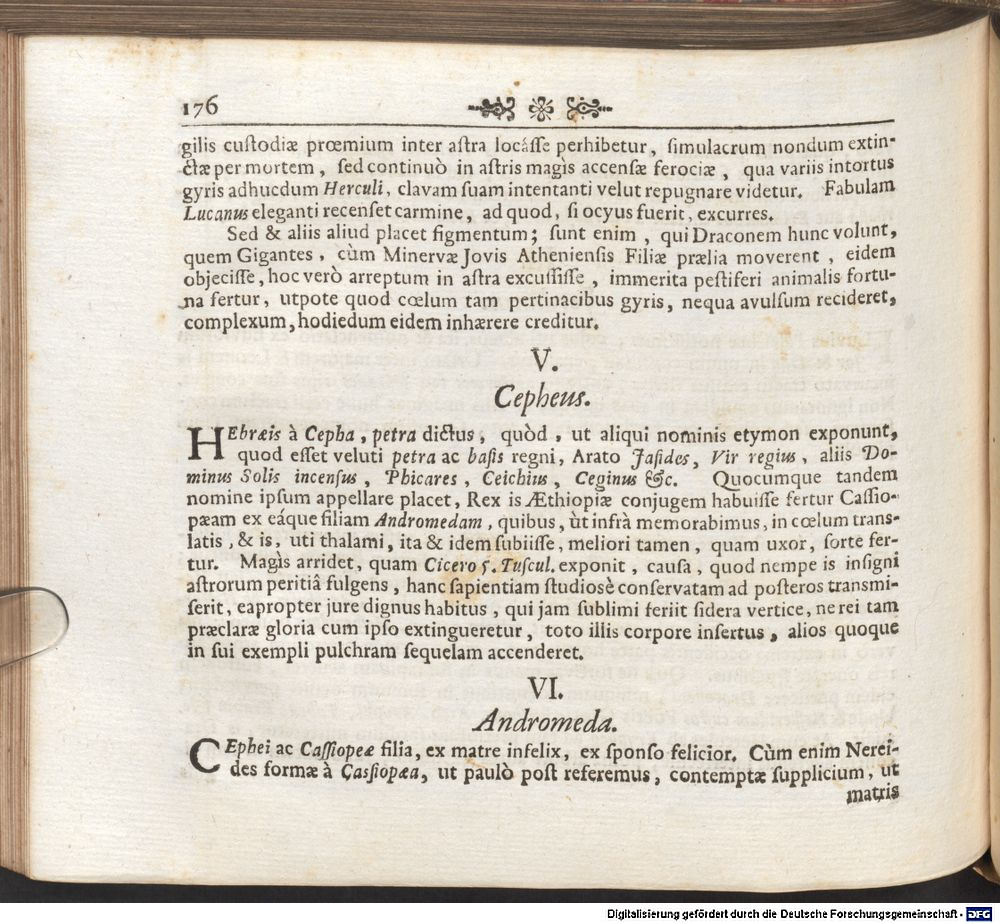 176
gilis custodiæ prœmium inter astra locásse perhibetur, simulacrum nondum extin-
ctæ per mortem, sed continuò in astris magìs accensæ ferociæ, qua variis intortus
gyris adhucdum Herculi, clavam suam intentanti velut repugnare videtur. Fabulam
Lucanus eleganti recenset carmine, ad quod, si ocyus fuerit, excurres.
Sed & aliis aliud placet figmentum; sunt enim, qui Draconem hunc volunt,
quem Gigantes, cùm Minervæ Jovis Atheniensis Filiæ prælia moverent, eidem
objecisse, hoc verò arreptum in astra excussisse, immerita pestiferi animalis fortu-
na fertur, utpote quod cœlum tam pertinacibus gyris, nequa avulsum recideret,
complexum, hodiedum eidem inhærere creditur.
V.
Cepheus.
HEbræis à Cepha, petra dictus, quòd, ut aliqui nominis etymon exponunt,
quod esset veluti petra ac basis regni, Arato Jasides, Vir regius, aliis Do-
minus Solis incensus, Phicares, Ceichius, Ceginus &c. Quocumque tandem
nomine ipsum appellare placet, Rex is Æthiopiæ conjugem habuisse fertur Cassio-
pæam ex eáque filiam Andromedam, quibus, ùt infrà memorabimus, in cœlum trans-
latis, & is, uti thalami, ita & idem subiisse, meliori tamen, quam uxor, sorte fer-
tur. Magìs arridet, quam Cicero 5. Tuscul. exponit, causa, quod nempe is insigni
astrorum peritiâ fulgens, hanc sapientiam studiosè conservatam ad posteros transmi-
serit, eapropter jure dignus habitus, qui jam sublimi feriit sidera vertice, ne rei tam
præclaræ gloria cum ipso extingueretur, toto illis corpore insertus, alios quoque
in sui exempli pulchram sequelam accenderet.
VI.
Andromeda.
CEphei ac Cassiopeæ filia, ex matre infelix, ex sponso felicior. Cùm enim Nerei-
des formæ à Cassiopæa, ut paulò post referemus, contemptæ supplicium, ut
matris
Digitalisierung gefördert durch die Deutsche Forschungsgemeinschaft - DFG